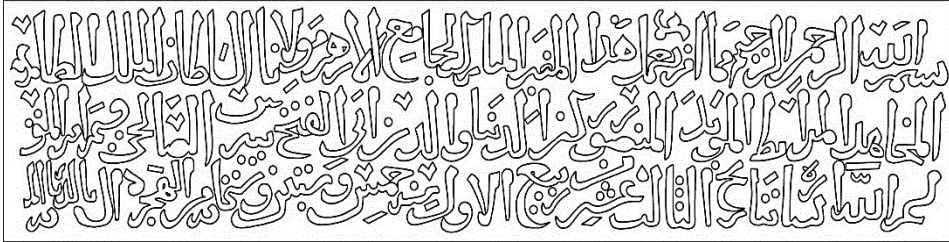 بسم الله الرحمن الرحيم مما امر بعمل هذا المنبر المبارك الجامع الازهر مولانا السلطان الملك الظاهر
المجاهد المرابط المؤيد المنصور ركن الدنيا والدين ابي الفتح بيبرس الصالحي
الله بتاريخ الثالث عشر ربيع الاول سنة خمس وستين وستمائة الهجرة